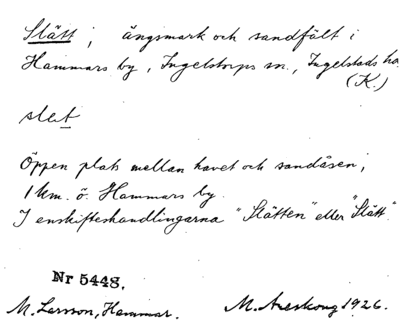 Slätt; ängsmark och sandfält i
Hammars by, Ingelstorps sn., Ingelstads hd.
(K.)
slet
Öppen plats mellan havet och sandåsen,
1 km. ö. Hammars by.
I enskifteshandlingarna "Slätten" eller "Slätt".
Nr 5448.
M. Larsson, Hammar.
M. Areskoug 1926.